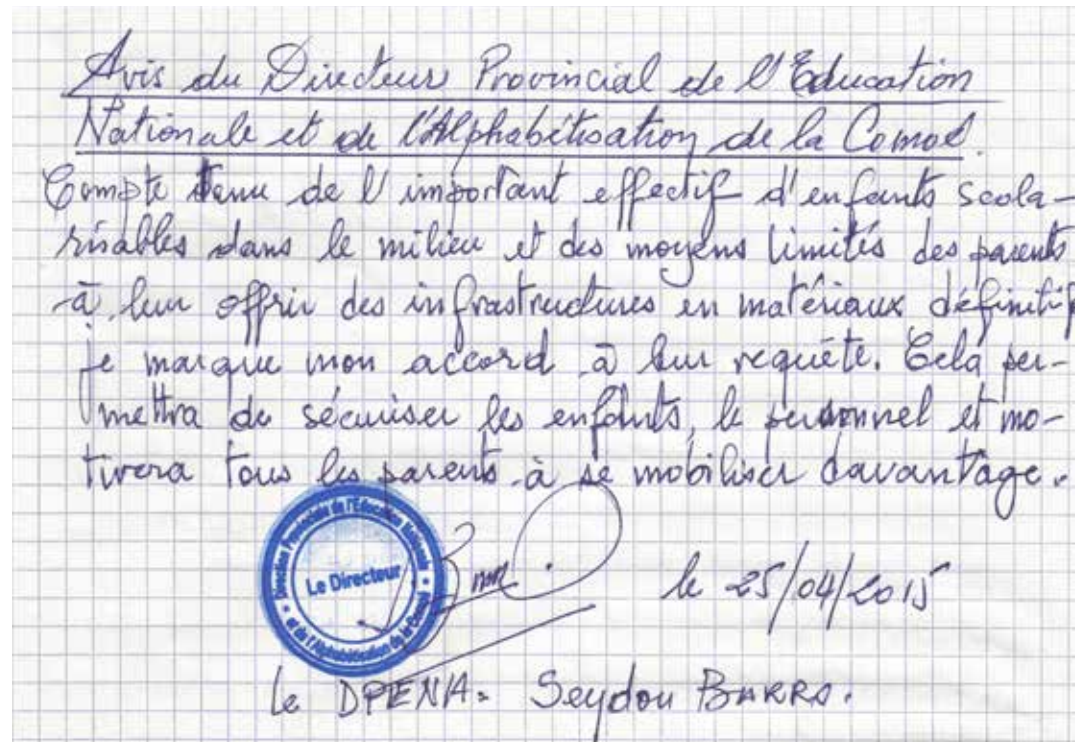 Avis du Directeur Provincial de l'Education
Nationale et de l'Alphabétisation de la Comoé.
Compte tenu de l'important effectif d'enfants scola-
risables dans le milieu et des moyens limités des parents
à leur offrir des infrastructures en matériaux définitifs
je marque mon accord à leur requête. Cela per-
mettra de sécuriser les enfants, le personnel et mo-
tivera tous les parents à se mobiliser davantage.
Direction Provinciale de l'Education Nationale
et de l'Alphabétisation de la Comoé
Le Directeur
le 25/04/2015
Le DPENA: Seydou BARRO.